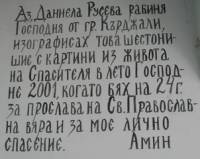 Аз, Даниела Русева рабиня
Господня от гр. Кърджали,
изографисах това шестокни-
шие с картини из живота
на Спасителя в лето Господ-
не 2001, когато бях на 27г.
за прослава на Св. Православ-
на вяра и за мое лично
спасение. Амин